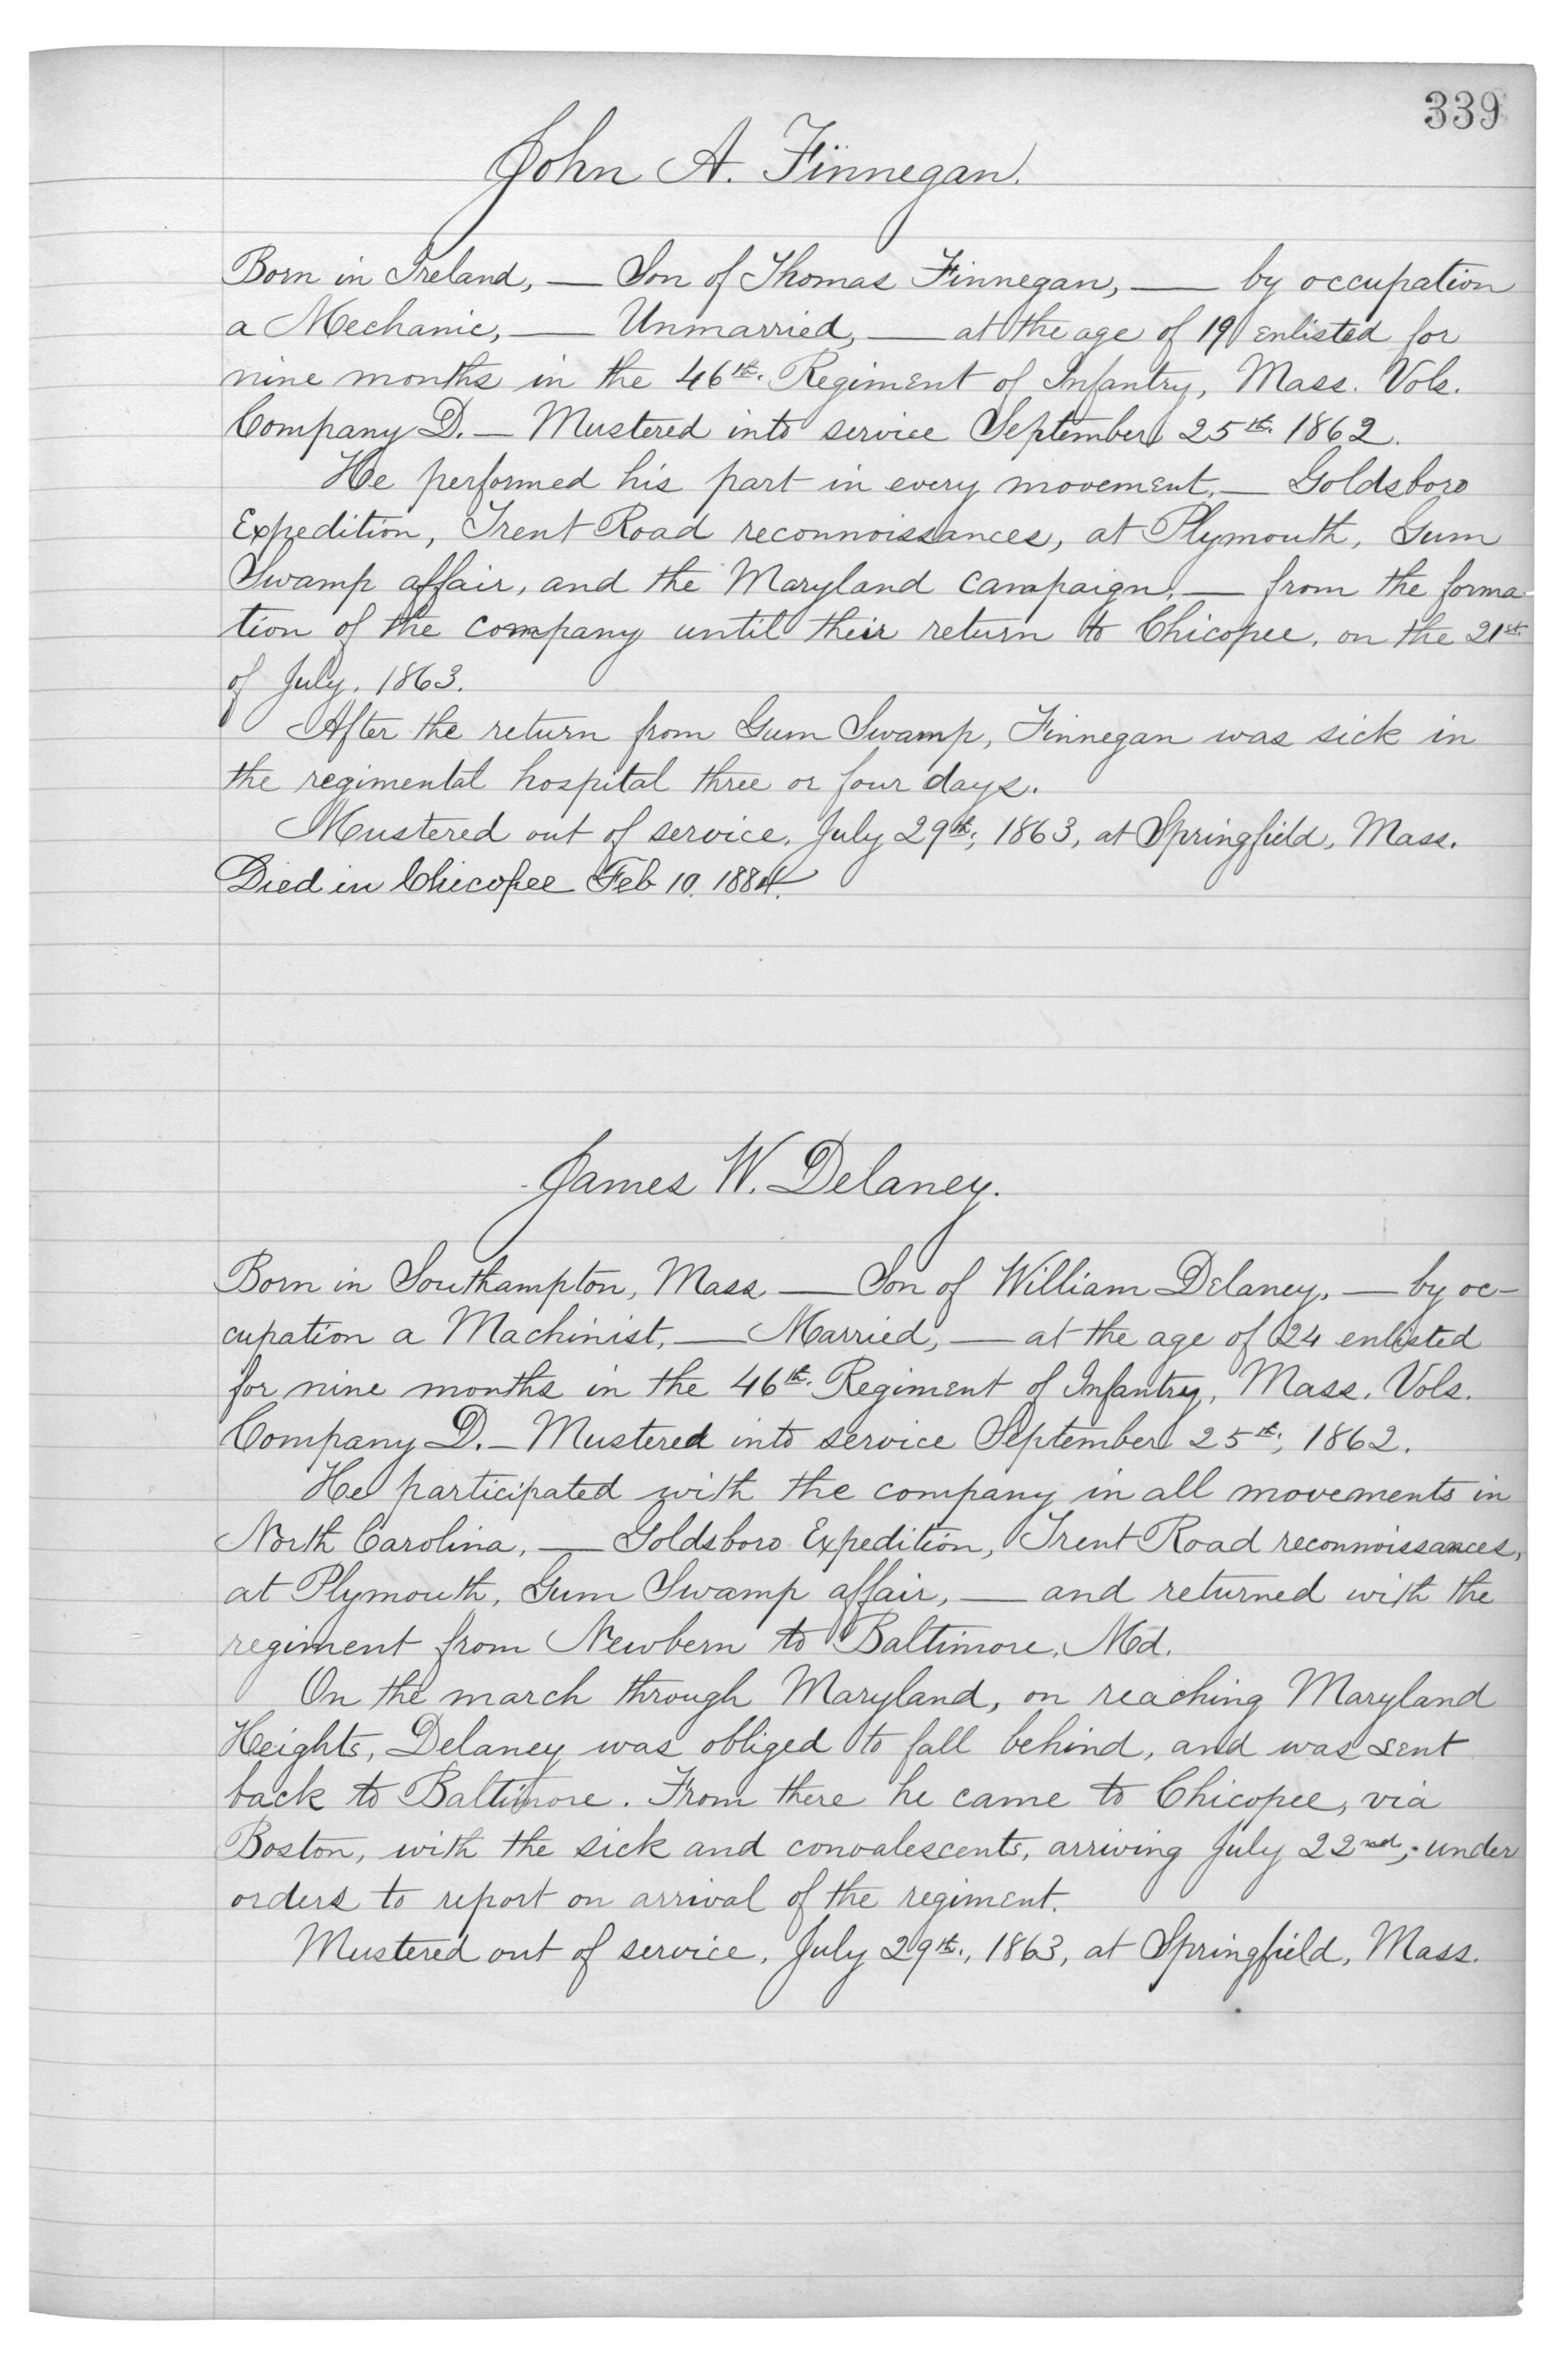 339
John A. Finnegan.
Born in Ireland, — Son of Thomas Finnegan, — by occupation
a Mechanic, — Unmarried, — at the age of 19 enlisted for
nine months in the 46th. Regiment of Infantry, Mass. Vols.
Company D. — Mustered into service September 25th. 1862.
He performed his part in every movement, — Goldsboro
Expedition, Trent Road reconnoissances, at Plymouth, Gum
Swamp affair, and the Maryland campaign, — from the forma-
tion of the company until their return to Chicopee, on the 21st.
of July, 1863.
After the return from Gum Swamp, Finnegan was sick in
the regimental hospital three or four days.
Mustered out of service, July 29th, 1863, at Springfield, Mass.
Died in Chicopee Feb 10. 1884.
James W. Delaney.
Born in Southampton, Mass — Son of William Delaney, — by oc-
cupation a Machinist, — Married, — at the age of 24 enlisted
for nine months in the 46th. Regiment of Infantry, Mass. Vols.
Company D. — Mustered into service September 25th, 1862.
He participated with the company in all movements in
North Carolina, — Goldsboro Expedition, Trent Road reconnoissances,
at Plymouth, Gum Swamp affair, — and returned with the
regiment from Newbern to Baltimore, Md.
On the march through Maryland, on reaching Maryland
Heights, Delaney was obliged to fall behind, and was sent
back to Baltimore. From there he came to Chicopee, via
Boston, with the sick and convalescents, arriving July 22nd, under
orders to report on arrival of the regiment.
Mustered out of service, July 29th., 1863, at Springfield, Mass.